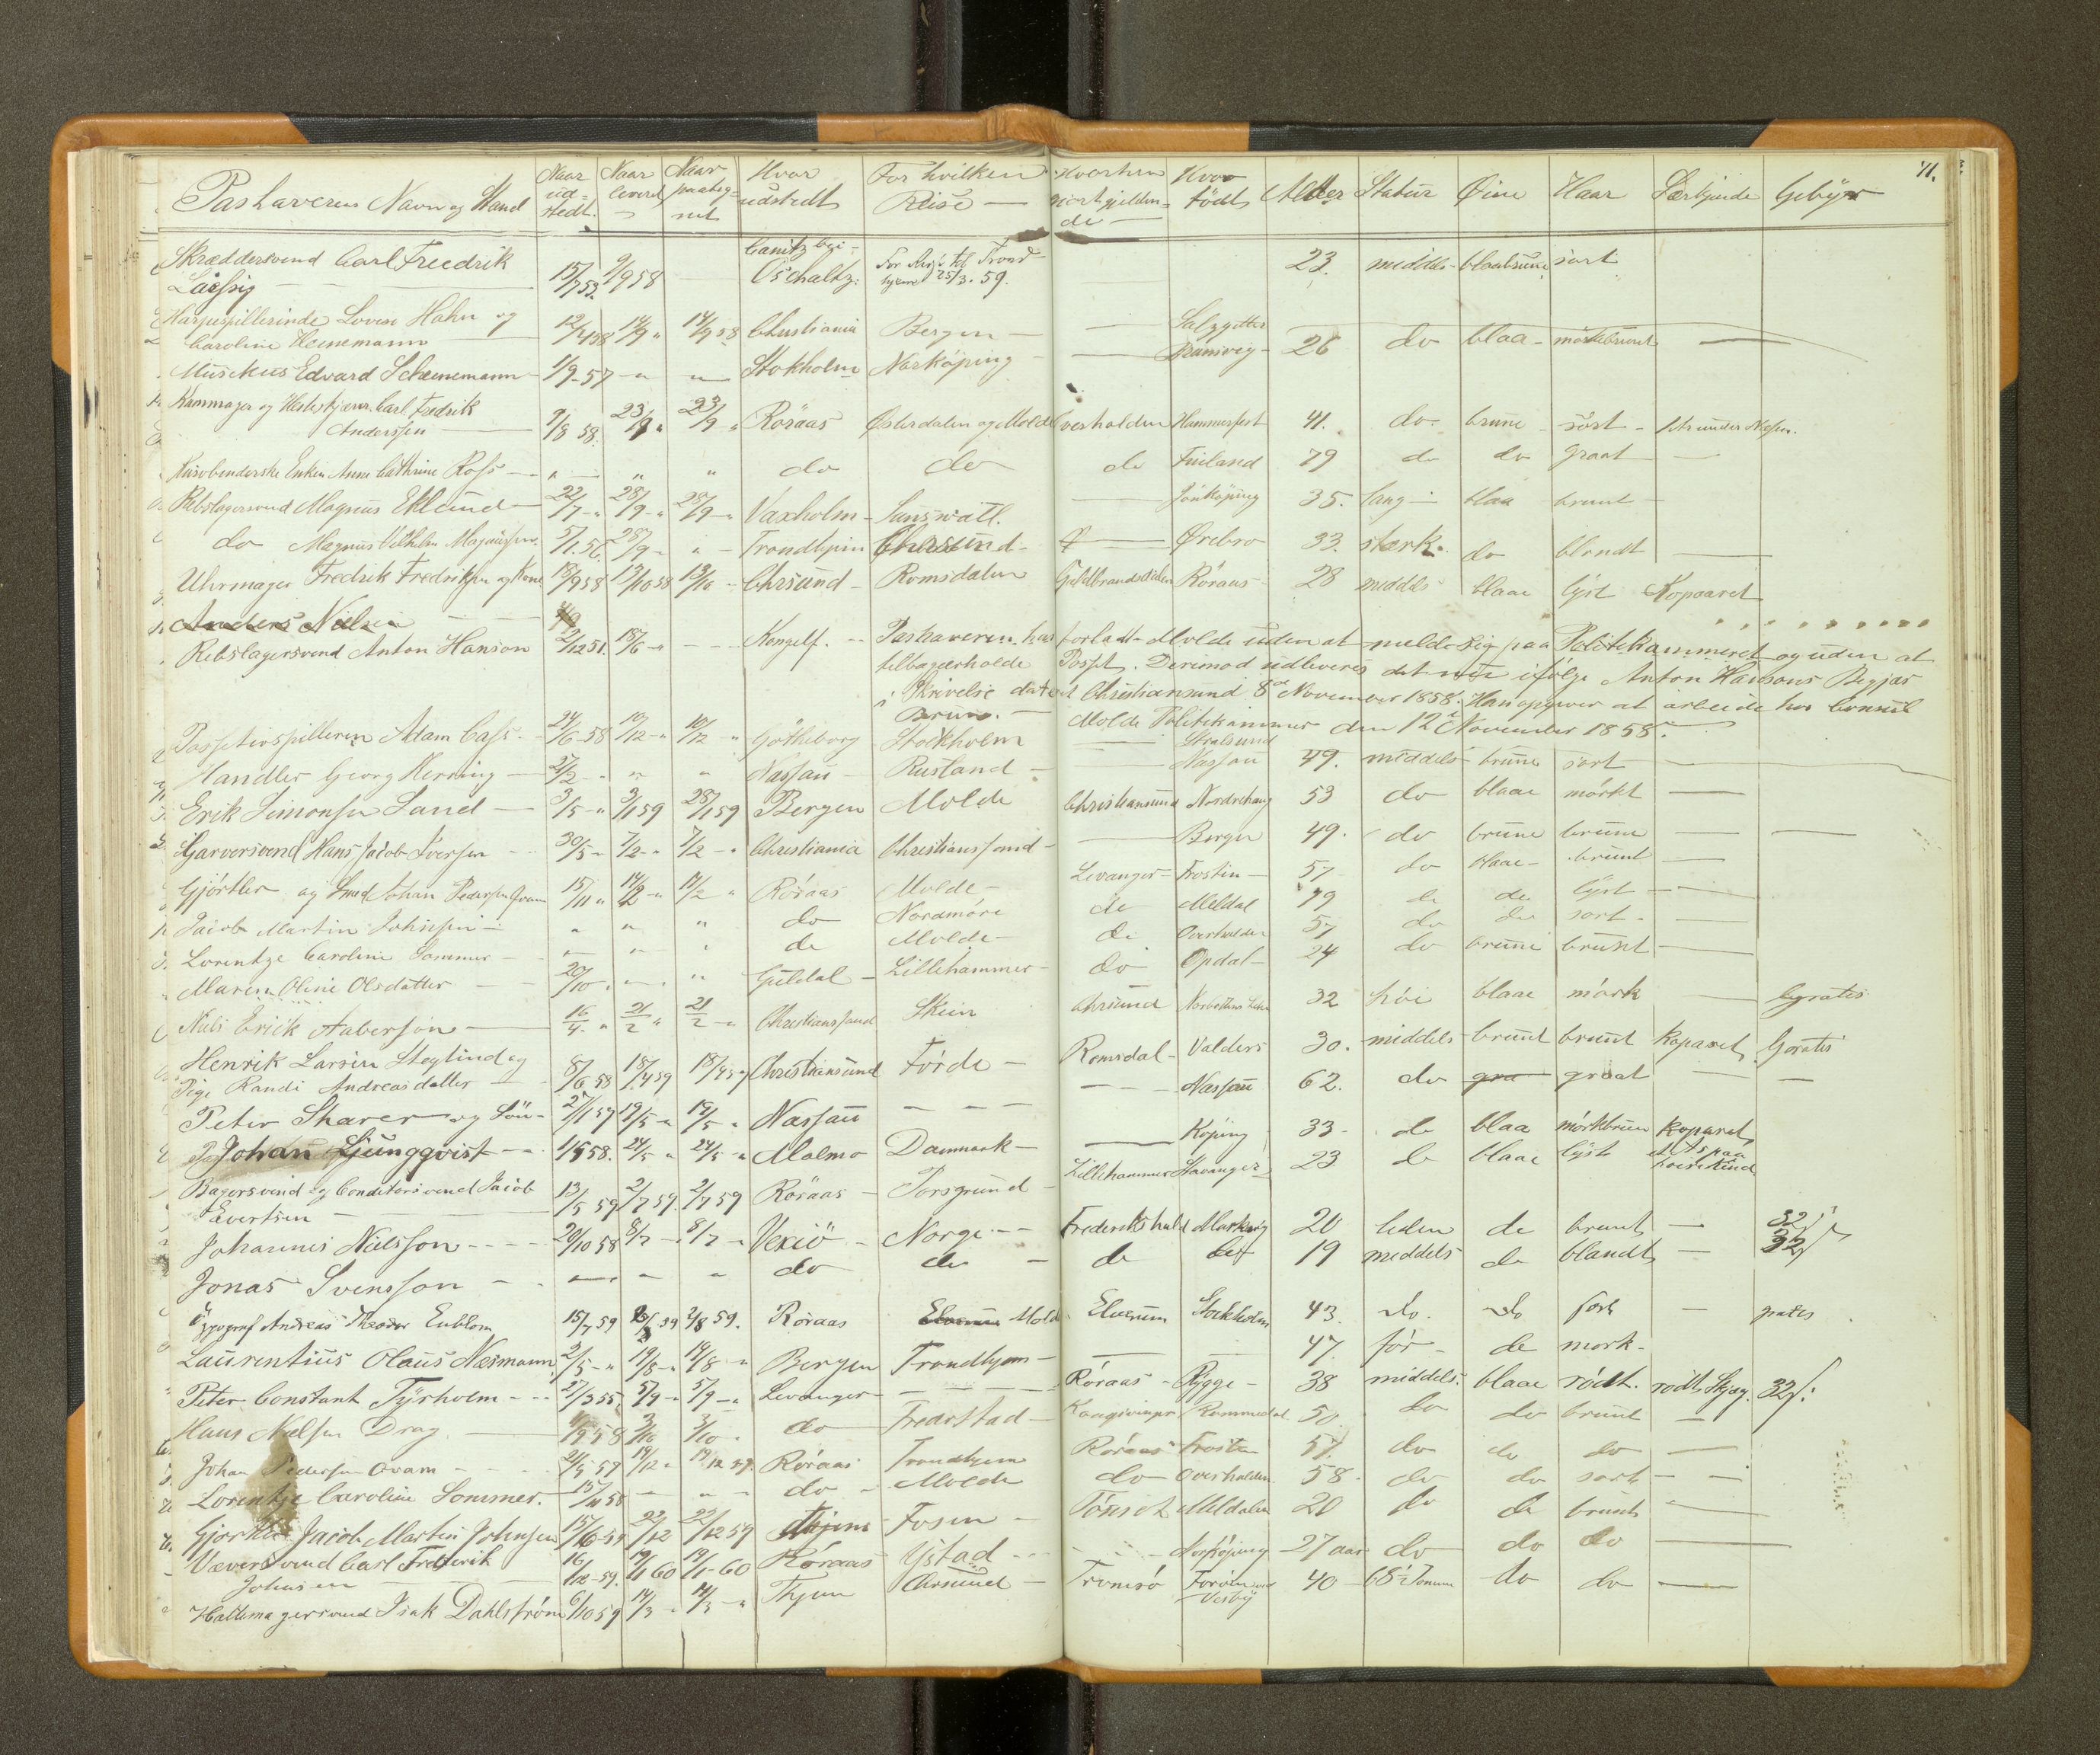 71.
Pashaverens Navn og Stand Naar udstedt. Naar leveret Naar paategnet Hvor udstedt For hvilken Reise Hvorhen gjeldende Hvor födt Alder Statur Øine Haar Særkjende Gebÿr
Skræddersvend Carl Friedrik 15/7 57. 9/9 58 Canitz For Reise til Trondhjem 25/3. 59. 23. middels blaabrune sort
Harpespillerinde Lovise Hahn og 14/9 " 14/9 58 Christiania Bergen Salzgitter
Caroline Heinemann 26 do blaa mörkbrunt
Musikus Edvard Scheenemann 1/9-57 " " Stokholm Norköping
Kammager og Carl Fredrik
Anderssen 9/8 58. 23/9 " 23/9 " Röraas Østerdalen og Molde Overhalden Hammerfest 41. do brune sort
Enken Anne Cathrine Ross " " " do do do Finland 79 do do graat
Rebslagersvend Magnus Eklund 22/7 " 28/9 " 28/9 " Vaxholm Jönköping 35. lang blaa brunt
do Magnus Vilhelm 5/1. 56 28/9 " " Trondhjem Chrsund Örebro 33. stærk do blondt
Uhrmager Fredrik Fredriksen og Kone 18/9 58 13/10 58 13/10 Chrsund Romsdalen Guldbrandsdalen Röraas 28 middels blaae lÿst Kopaaret
Anders Nielsen
Rebslagersvend Anton Hanson 2/12 51. 18/6 " Kongelf. Pashaveren har forladt Molde uden at melde sig paa Politikammeret og uden at
tilbageerholde Passet. Derimod udleveres det ifölge Anton Hansons Begjær
i Skrivelse dateret Christiansund 8de November 1858. Han opgiver at arbeide hos Consul
Brun. Molde Politikammer den 12te November 1858.
Positivspilleren Adam Cass 24/6-58 10/12 " 10/12 " Götheborg Stockholm Stralsund
Handler Georg Herning 2/2 " " " Nassau Rusland Nassau 49. middels brune sort
Erik Simonsen Sand 3/5 " 3/1 59 28/1 59 Bergen Molde Christiansund Nordrehaug 53 do blaae mörkt
Garversvend Hans Jacob Iversen 30/5 " 7/2 " 7/2 " Christiania Christianssand Bergen 49. do brune brune
Gjörtler og Smed Johan Pedersen Qvam 15/11 " 14/2 " 14/2 " Röraas Molde Levanger Frosten 57 do blaae brunt
Jacob Martin Johnsen " " " do Nordmöre do Meldal 19 do do lÿst
Lorentze Caroline Sommer " " " do Molde do Overhalden 57 do do sort
Maren Oline Olsdatter 20/10 " " Guldal Lillehammer do Opdal 24 do brune brunt
Nils Erick Aaberson 16/4. " 21/2 " 21/2 " Christianssand Skien Chrsund 32 höi blaae mörk gratis
Henrik Larsen Steglind og
Pige Randi Andreasdatter 8/6 58 18/4 59 18/4 59 Christiansund Förde Romsdal Valders 30. middels brunt brunt koparet Gratis
Peter Sharer og Sön 27/1 57 19/5 " 19/5 " Nassau Nassau 62. do graat
Johan Ljungqvist 1/5 58. 24/5 " 24/5 " Malmo Danmark Köping 33 do blaa mörkbrun koparet
Bagersvend og Conditorsvend Jacob
Evertsen 13/5 59 2/7 59. 2/7 59 Röraas Porsgrund Lillehammer Stavanger 23 do blaae lÿst et Ar paa höire Kind
Johannes Nielsson 20/10 58 8/7 8/7 Vexiö Norge Frederikshald Markarÿ 20 liden do brunt 32
Jonas Svensson " " " do do do 19 middels do blandt 32
Typograf Andreas Theodor Enblom 15/7 59 59 2/8 59. Röraas Molde Elverum Stockholm 43. do. do sort gratis
Laurentius Olaus Næsmann 2/5 " 19/8 " 19/8 " Bergen Trondhjem 47 för do mörk
Peter Constant Tÿrholm 27/3 55. 5/9 " 5/9 " Levanger Röraas Rÿgge 38 middels blaae rödt. rödt Skjæg. 32/:
Hans Nielsen Drag 1/9 58 3/10 3/10 do Fredrstad Kongsvinger Rommedal 50. do do brunt
Johan Pedersen Qvam 24/5 59 19/12 " 19/12 59. Röraas Trondhjem Röraas Frosta 57. do do do
Lorentze Caroline Sommer. 15/11 58 " " do Molde do Overhalden 58. do do sort
Gjörtler Jacob Martin Johnsen 15/10 59 22/12 22/12 59 Thjem Fosen Tönset Meldalen 20 do do brunt
Væversvend Carl Frederik
Johnsen 16/12-59. 19/1 60 19/1-60 Röraas Ÿstad Norköping 27 aar do do do
Hattemagersvend Isak Dahlström 6/10 59 14/3 " 14/3 " Thjem Chrsund Tromsö 40 68" do do